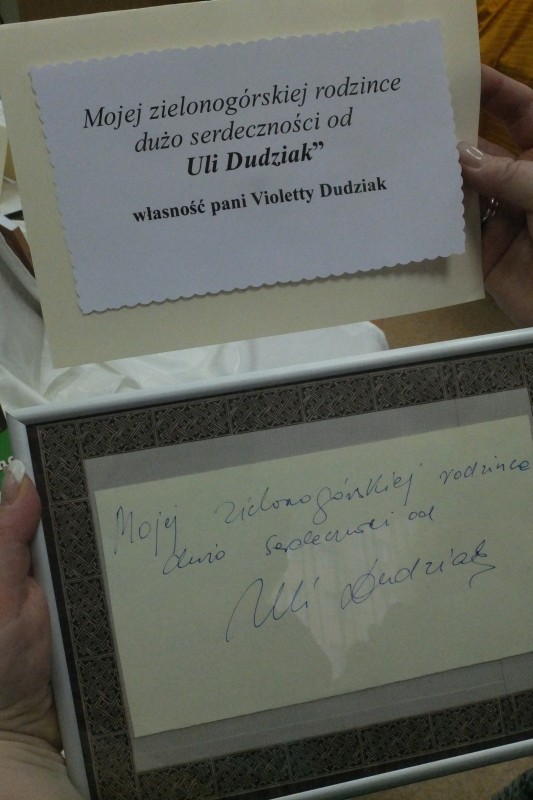 Mojej zielonogórskiej rodzince
dużo serdeczności od
Uli Dudziak”
własność pani Violetty Dudziak
Mojej zielonogórskiej rodzince
dużo serdeczności od
Uli Dudziak